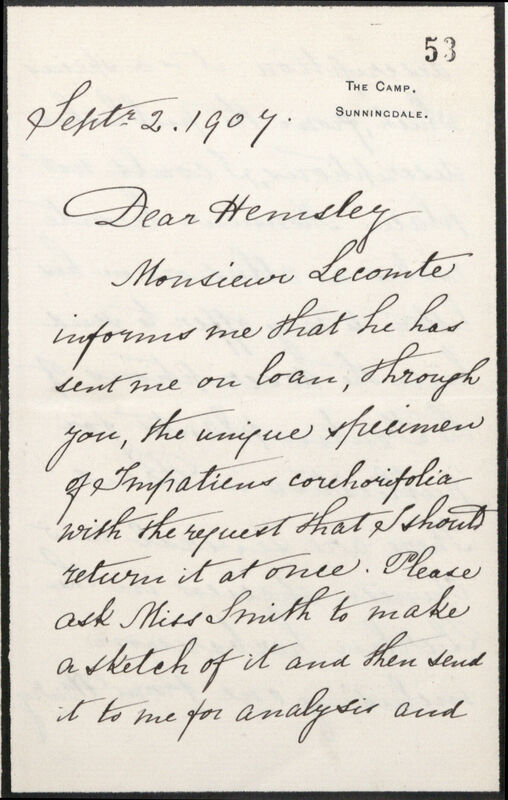 53
The Camp.
Sunningdale.
Septr 2. 1907.
Dear Hemsley
Monsieur Lecomte
informs me that he has
sent me on loan, through
you, the unique specimen
of Impatiens corchorifolia
with the request that I should
return it at once. Please
ask Miss Smith to make
a sketch of it and then send
it to me for analysis and